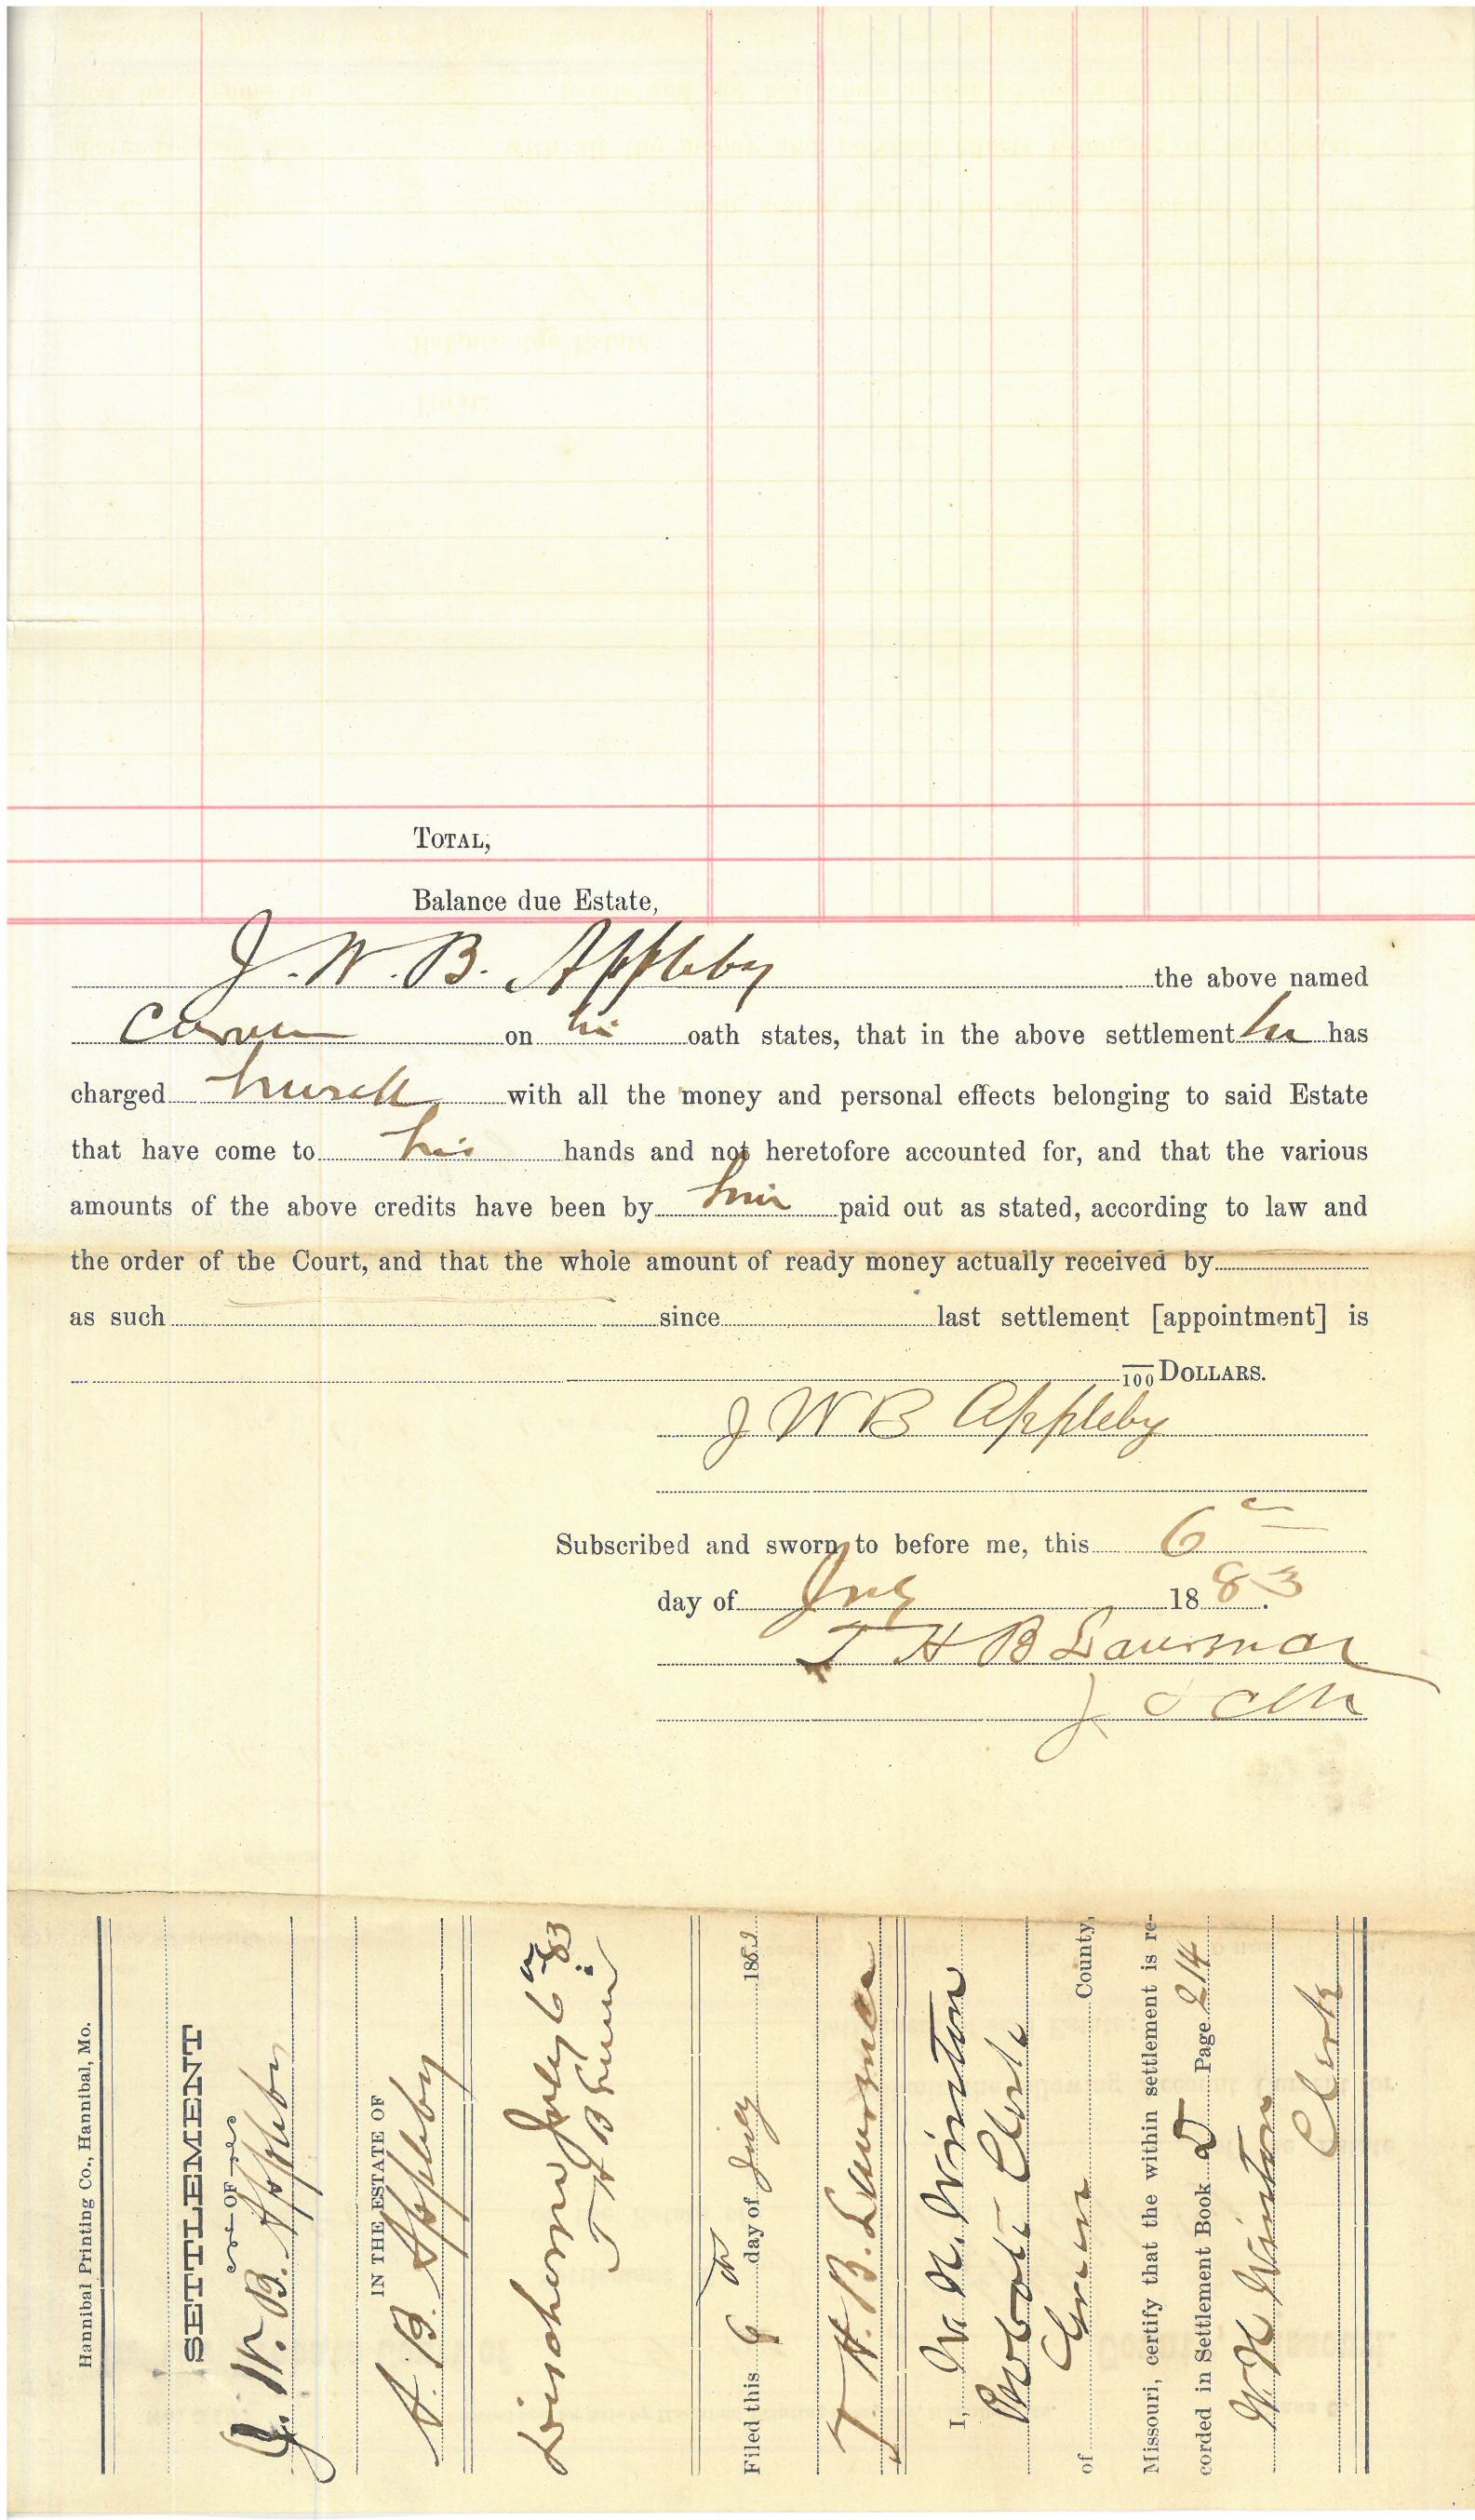 TOTAL,
Balance due Estate,
J. W. B. Appleby the above named
on his oath states, that in the above settlement he has
charged himself with all the money and personal effects belonging to said Estate
that have come to his hands and not heretofore accounted for, and that the various
amounts of the above credits have been by him paid out as stated, according to law and
the order of the Court, and that the whole amount of ready money actually received by
as such since last settlement [appointment] is
/100 DOLLARS.
J W B Appleby
Subscribed and sworn to before me, this 6
day of July 1883.
T H B
Hannibal Printing Co., Hannibal, Mo.
SETTLEMENT
OF
J. W. B. Appleby
IN THE ESTATE OF
A. B. Appleby
July 6 83
T H B
Filed this 6 day of July 188
T. H. B.
I, W. N. Winton
Probate Clerk
of County,
Missouri, certify that the within settlement is re-
corded in Settlement Book D Page 214
W. N. Winton
Clerk